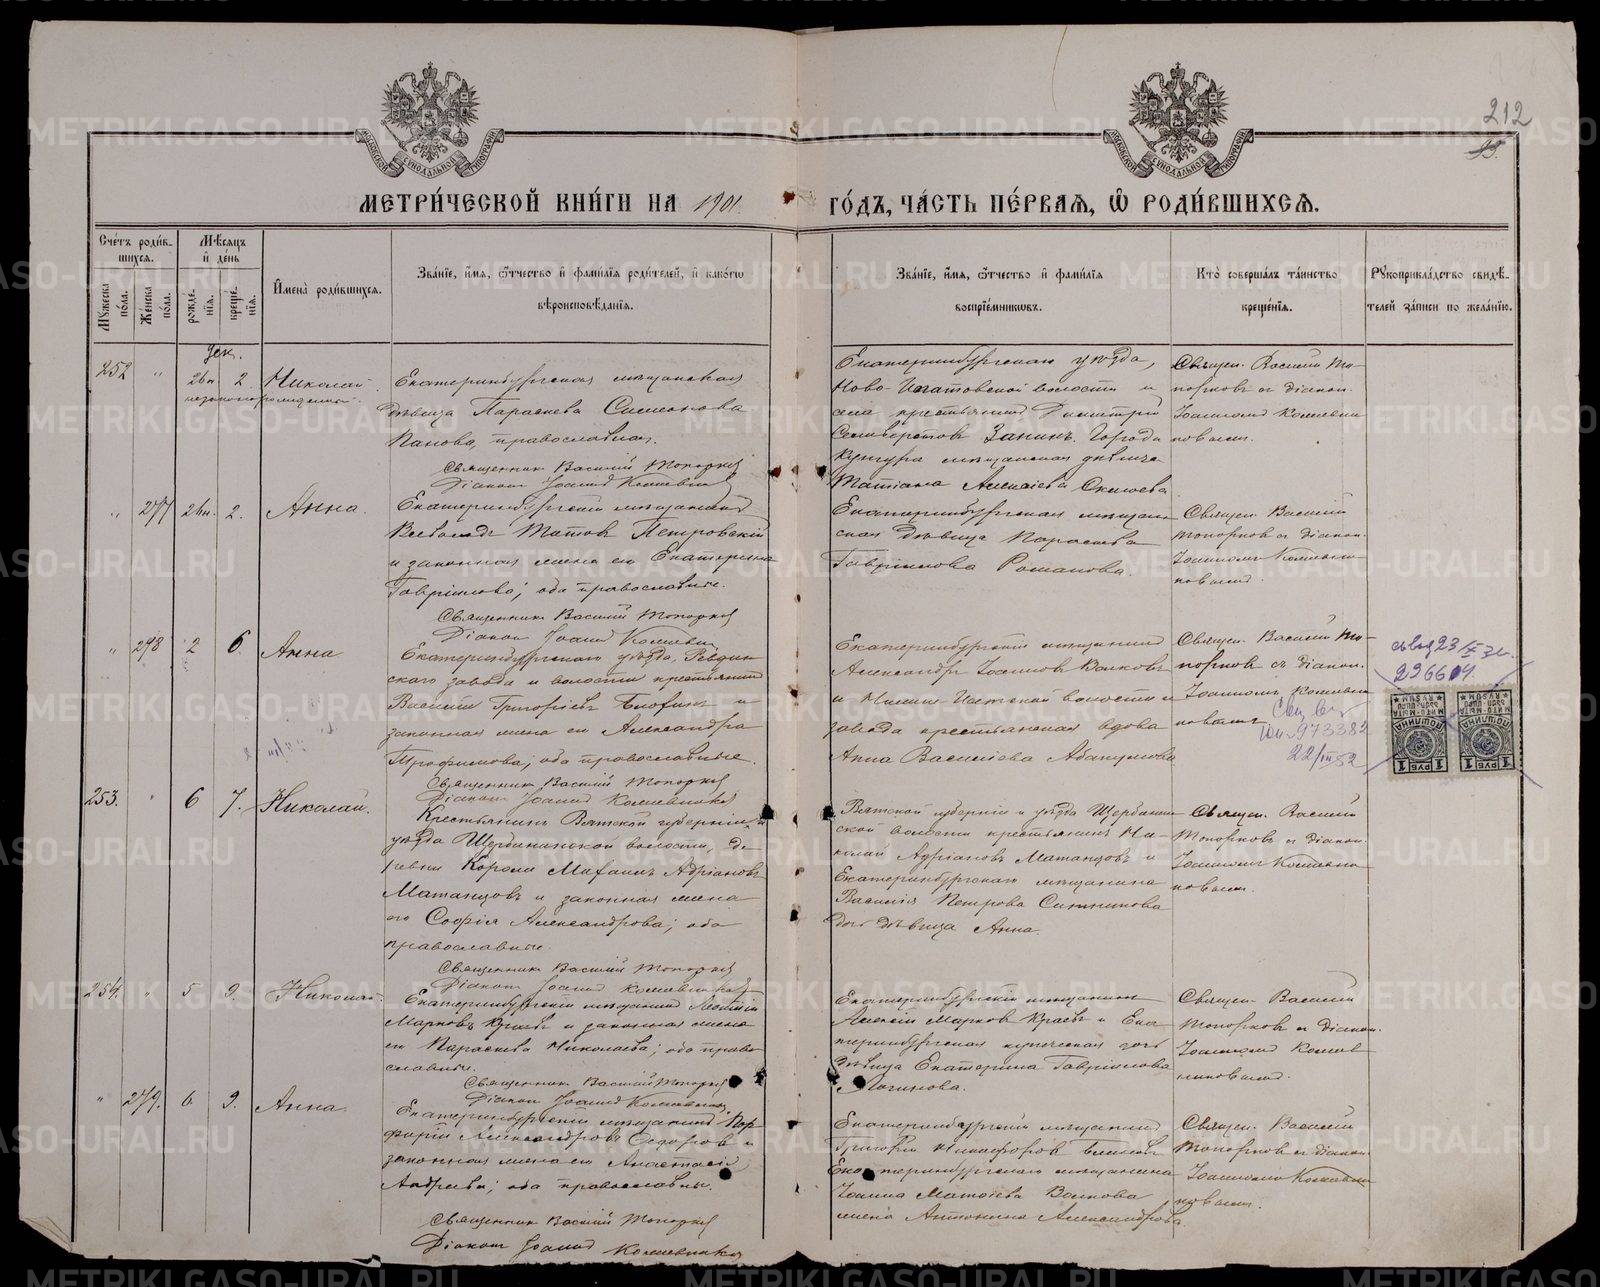 212
МЕТРИ́ЧЕСКОЙ КНИ́ГИ НА 1901 ГО́ДЪ, ЧА́СТЬ ПЕ́РВАЯ, Ѽ РОДИ́ВШИХСЯ.
Сче́тъ роди́в-
шихся.
Мꙋ́жеска по́ла.
Же́нска по́ла.
Мѣ́сяцъ и́ де́нь
рожде́-нїя.
креще́-нїя.
И́мена̀ роди́вшихся.
Зва́нїе, и́мя, ѻ҆́тчество и́ фами́лїя роди́телей, и́ како́гѡ
вѣроисповѣ́данїя.
Зва́нїе, и́мя, ѻ҆́тчество и́ фами́лїя
воспрїе́мниковъ.
Кто̀ соверша́лъ та́инство
креще́нїя.
Рꙋкоприкла́дство свидѣ́-
телей за́писи по жела́нїю.
дек.
252 " 26н. 2 Николай
незаконнорожденный.
Екатеринбургская мѣщанская
дѣвица Параскева Симеонова
Панова, православная.
Священникъ Василій Топорковъ
Діаконъ Іоаннъ Кожевниковъ
Екатеринбургскаго уѣзда,
Ново-Ипатовской волости и
села крестьянинъ Димитрій
Селиверстовъ Занинъ. Города
Кунгура мѣщанская дѣвица
Татіана Алексіева
Священ. Василій То-
порковъ съ діакон.
Іоанномъ Кожевни
ковымъ.
" 277 26н. 2. Анна.
Екатеринбургскій мѣщанинъ
Всеволодъ Титовъ Петровскій
и законная жена его Екатерина
Гавріилова; оба православные.
Священникъ Василій Топорковъ
Діаконъ Іоаннъ Кожевниковъ
Екатеринбургская мѣщан-
ская дѣвица Параскева
Гавріилова Романова.
Священ. Василій
Топорковъ съ діакон.
Іоанномъ Кожевни-
ковымъ.
" 278 2 6. Анна
Екатеринбургскаго уѣзда, Ревдин
скаго завода и волости крестьянинъ
Василій Григоріевъ и
законная жена его Александра
Трофимова; оба православные.
Священникъ Василій Топорковъ
Діаконъ Іоаннъ Кожевниковъ
Екатеринбургскій мѣщанинъ
Александръ Іоанновъ Волковъ
и Нижне-Исетской волости и
завода крестьянская вдова
Анна Василіева Абакумова
Священ. Василій То-
порковъ съ діакон.
Іоанномъ Кожевни
ковымъ
973382
22/III 52
МИТО-МЫТА
ПОШЛИНА
1 РУБ 1
МИТО-МЫТА
ПОШЛИНА
1 РУБ 1
253. " 6 7. Николай.
Крестьянинъ Вятской губерніи и
уѣзда Щербининской волости, де-
ревни Михаилъ Адріановъ
Матанцовъ и законная жена
его Софія Александрова; оба
православные.
Священникъ Василій Топорковъ
Діаконъ Іоаннъ Кожевниковъ
Вятской губерніи и уѣзда Щербинин
ской волости крестьянинъ Ни-
колай Адріановъ Матанцовъ и
Екатеринбургскаго мѣщанина
Василія Петрова Ситникова
дочь дѣвица Анна.
Священ. Василій
Топорковъ съ діакон.
Іоанномъ Кожевни-
ковымъ.
254. " 5 9. Николай.
Екатеринбургскій мѣщанинъ
Марковъ Краевъ и законная жена
его Параскева Николаева; оба право-
славные.
Священникъ Василій Топорковъ
Діаконъ Іоаннъ Кожевниковъ
Екатеринбургскій мѣщанинъ
Алексій Марковъ Краевъ и Ека-
теринбургская купеческая дочь
дѣвица Екатерина Гавріилова
Логинова.
Священ. Василій
Топорковъ съ діакон.
Іоанномъ Кожев-
никовымъ.
" 279. 6 9. Анна.
Екатеринбургскій мѣщанинъ Пор-
фирій Александровъ Ѳедоровъ и
законная жена его Анастасія
Андреева; оба православны.
Священникъ Василій Топорковъ
Діаконъ Іоаннъ Кожевниковъ
Екатеринбургскій мѣщанинъ
Григорій Никифоровъ и
Екатеринбургскаго мѣщанина
Іоанна Матѳіева Волкова
жена Антонина Александрова.
Священ. Василій
Топорковъ съ діакон.
Іоанномъ Кожевни
ковымъ.
METRIKI.GASO-URAL.RU